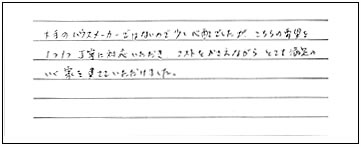 大手のハウスメーカーではないので少し心配でしたが、こちらの希望を
1つ1つ丁寧に対応いただき コストをおさえながら とても満足の
いく家を建てていただけました。